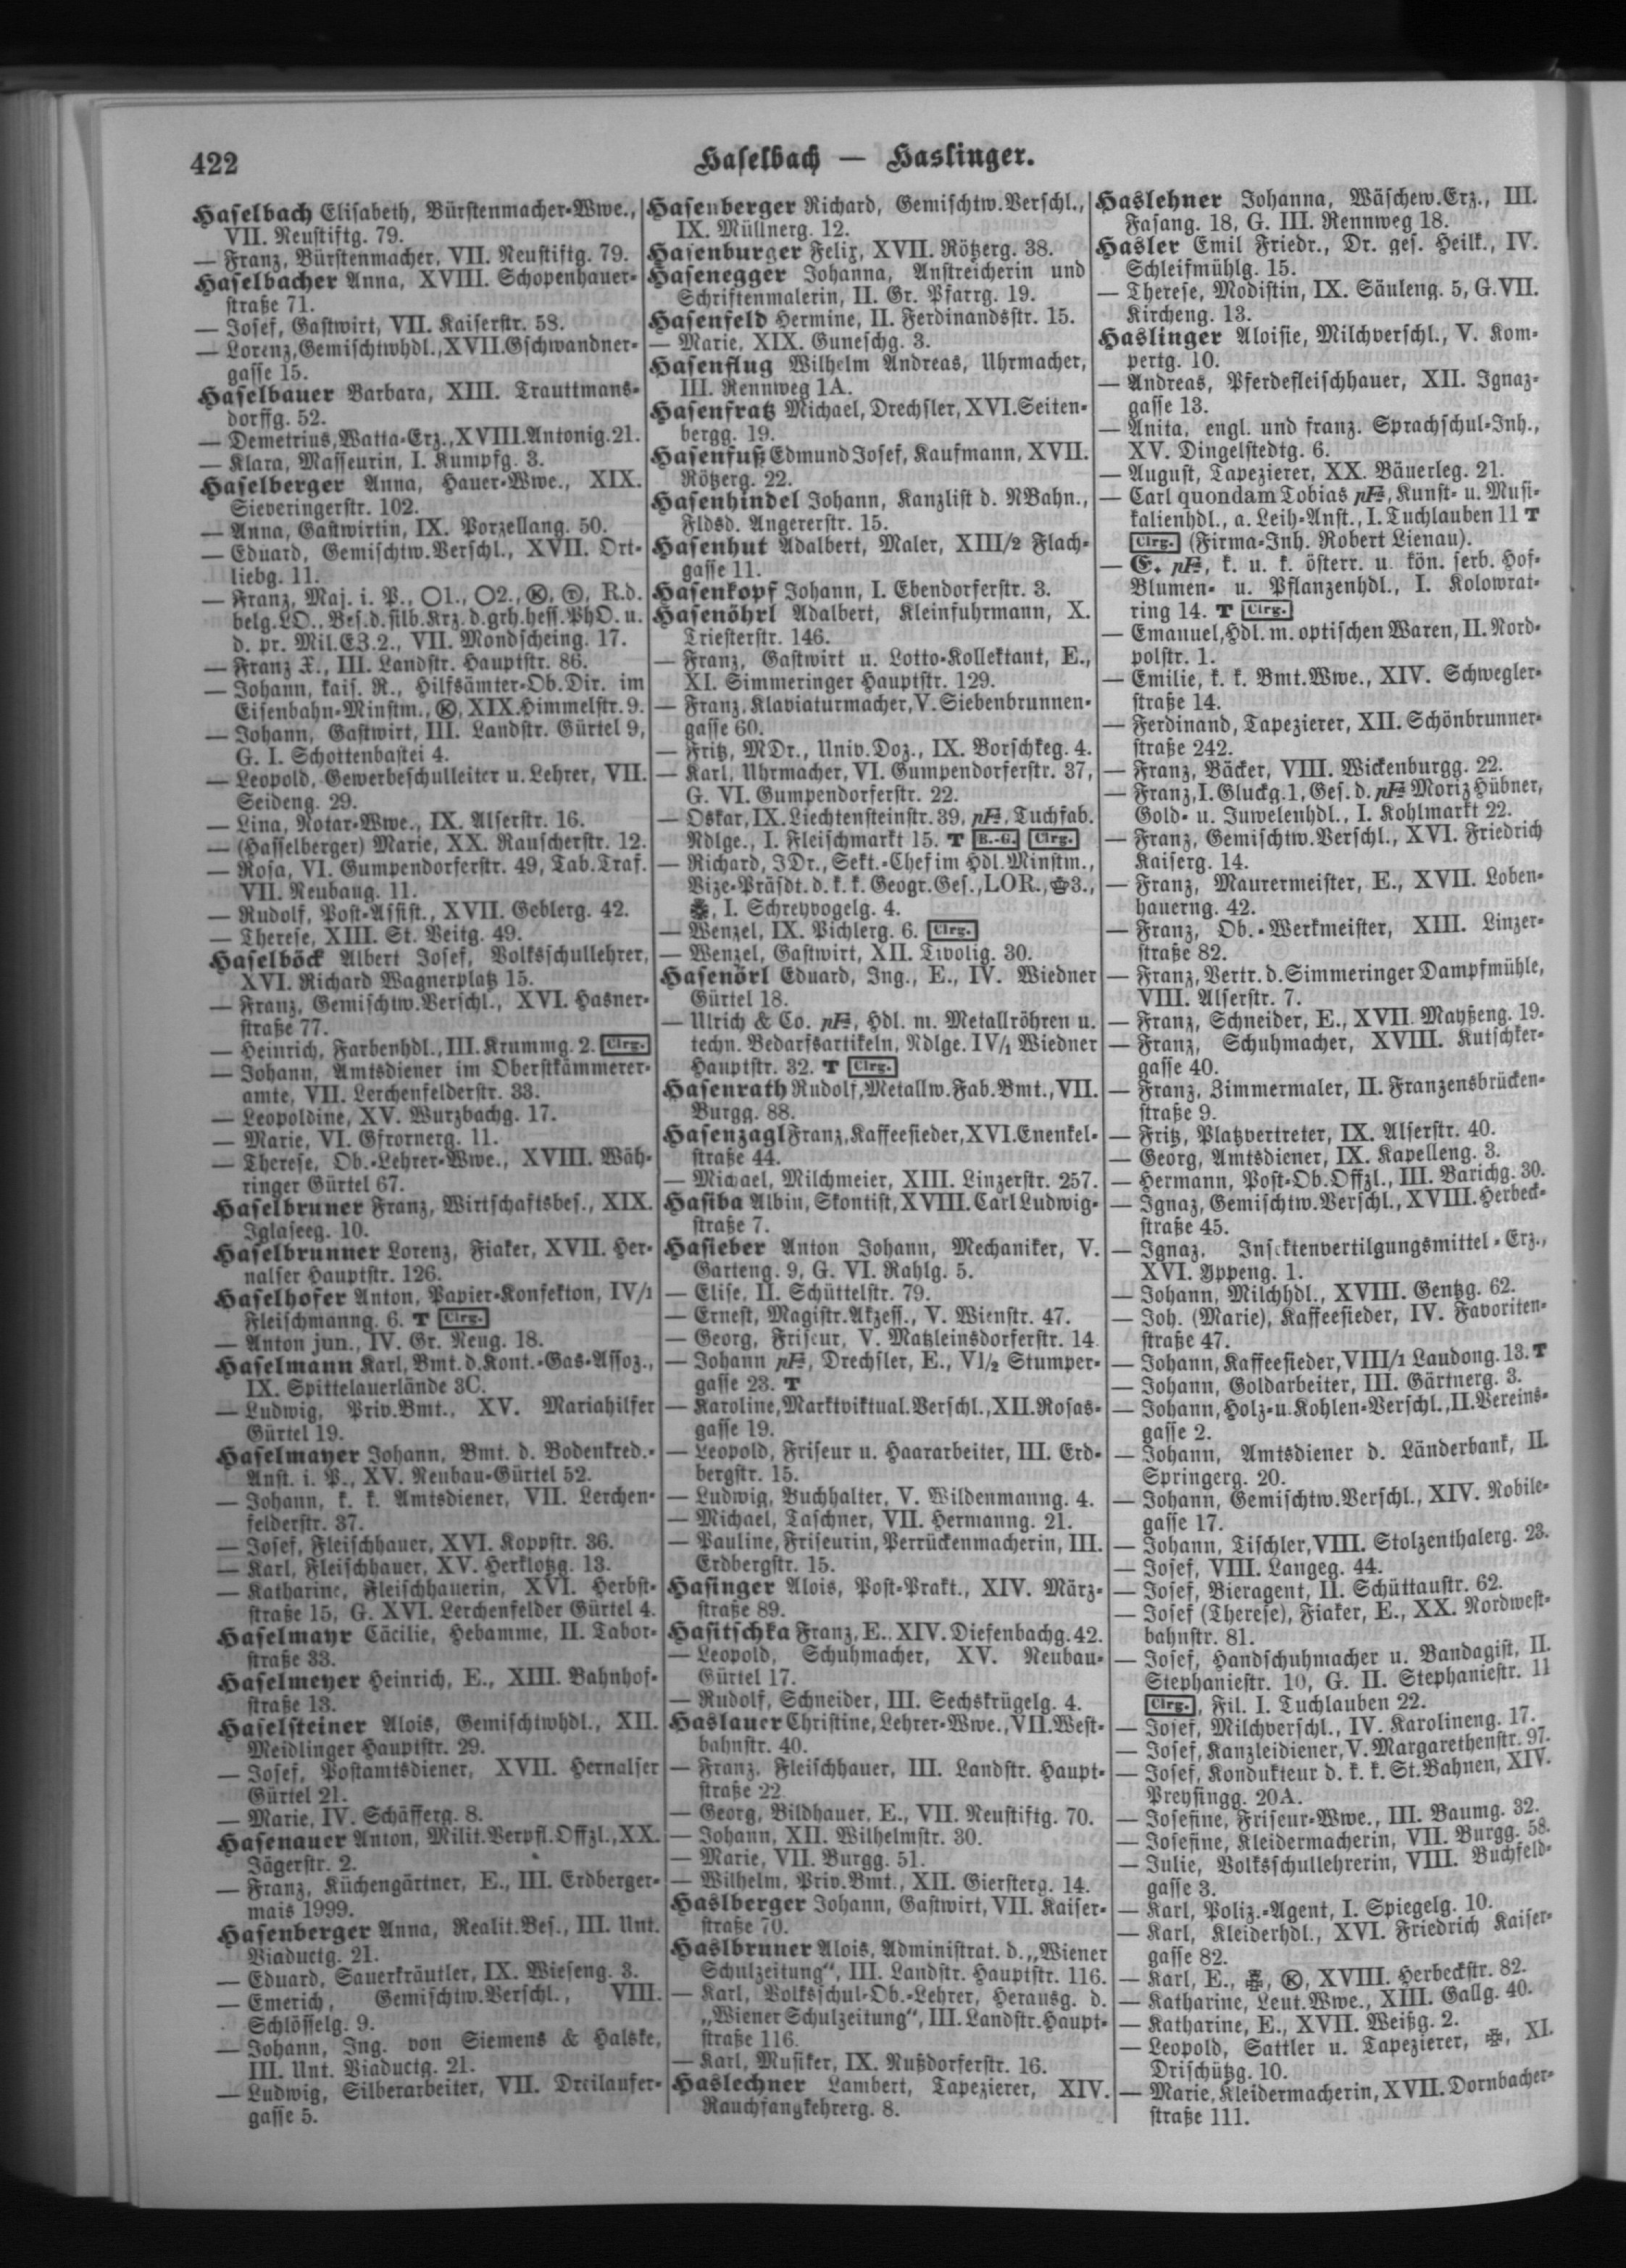 422
Haselbach — Haslinger.
Haselbach Elisabeth, Bürstenmacher-Wwe.,
VII. Neustiftg. 79.
— Franz, Bürstenmacher, VII. Neustiftg. 79.
Haselbacher Anna, XVIII. Schopenhauer-
straße 71.
— Josef, Gastwirt, VII. Kaiserstr. 58.
— Lorenz, Gemischtwhdl., XVII. Gschwandner-
gasse 15.
Haselbauer Barbara, XIII. Trauttmans-
dorffg. 52.
— Demetrius, Watta-Erz., XVIII. Antonig. 21.
— Klara, Masseurin, I. Kumpfg. 3.
Haselberger Anna, Hauer-Wwe., XIX.
Sieveringerstr. 102.
— Anna, Gastwirtin, IX. Porzellang. 50.
— Eduard, Gemischtw.Verschl., XVII. Ort-
liebg. 11.
— Franz, Maj. i. P., ○1., ○2., Ⓚ, Ⓣ, R.d.
belg.LO., Bes.d.silb.Krz.d.grh.hess.PhO. u.
d. pr. Mil.EZ.2., VII. Mondscheing. 17.
— Franz X., III. Landstr. Hauptstr. 86.
— Johann, kais. R., Hilfsämter-Ob.Dir. im
Eisenbahn-Minstm., Ⓚ, XIX. Himmelstr. 9.
— Johann, Gastwirt, III. Landstr. Gürtel 9,
G. I. Schottenbastei 4.
— Leopold, Gewerbeschulleiter u. Lehrer, VII.
Seideng. 29.
— Lina, Notar-Wwe., IX. Alserstr. 16.
— (Hasselberger) Marie, XX. Rauscherstr. 12.
— Rosa, VI. Gumpendorferstr. 49, Tab.Traf.
VII. Neubaug. 11.
— Rudolf, Post-Assist., XVII. Geblerg. 42.
— Therese, XIII. St. Veitg. 49.
Haselböck Albert Josef, Volksschullehrer,
XVI. Richard Wagnerplatz 15.
— Franz, Gemischtw.Verschl., XVI. Hasner-
straße 77.
— Heinrich, Farbenhdl., III. Krummg. 2. Clrg.
— Johann, Amtsdiener im Oberstkämmerer-
amte, VII. Lerchenfelderstr. 33.
— Leopoldine, XV. Wurzbachg. 17.
— Marie, VI. Gfrornerg. 11.
— Therese, Ob.-Lehrer-Wwe., XVIII. Wäh-
ringer Gürtel 67.
Haselbruner Franz, Wirtschaftsbes., XIX.
Iglaseeg. 10.
Haselbrunner Lorenz, Fiaker, XVII. Her-
nalser Hauptstr. 126.
Haselhofer Anton, Papier-Konfektion, IV/1
Fleischmanng. 6. T Clrg.
— Anton jun., IV. Gr. Neug. 18.
Haselmann Karl, Bmt. d. Kont.-Gas-Assoz.,
IX. Spittelauerlände 3C.
— Ludwig, Priv.Bmt., XV. Mariahilfer
Gürtel 19.
Haselmayer Johann, Bmt. d. Bodenkred.-
Anst. i. P., XV. Neubau-Gürtel 52.
— Johann, k. k. Amtsdiener, VII. Lerchen-
felderstr. 37.
— Josef, Fleischhauer, XVI. Koppstr. 36.
— Karl, Fleischhauer, XV. Herklotzg. 13.
— Katharine, Fleischhauerin, XVI. Herbst-
straße 15, G. XVI. Lerchenfelder Gürtel 4.
Haselmayr Cäcilie, Hebamme, II. Tabor-
straße 33.
Haselmeyer Heinrich, E., XIII. Bahnhof-
straße 13.
Haselsteiner Alois, Gemischtwhdl., XII.
Meidlinger Hauptstr. 29.
— Josef, Postamtsdiener, XVII. Hernalser
Gürtel 21.
— Marie, IV. Schäfferg. 8.
Hasenauer Anton, Milit.Verpfl.Offzl., XX.
Jägerstr. 2.
— Franz, Küchengärtner, E., III. Erdberger-
mais 1999.
Hasenberger Anna, Realit.Bes., III. Unt.
Viaductg. 21.
— Eduard, Sauerkräutler, IX. Wieseng. 3.
— Emerich, Gemischtw.Verschl., VIII.
Schlösselg. 9.
— Johann, Ing. von Siemens & Halske,
III. Unt. Viaductg. 21.
— Ludwig, Silberarbeiter, VII. Dreilaufer-
gasse 5.
Hasenberger Richard, Gemischtw.Verschl.,
IX. Müllnerg. 12.
Hasenburger Felix, XVII. Rötzerg. 38.
Hasenegger Johanna, Anstreicherin und
Schriftenmalerin, II. Gr. Pfarrg. 19.
Hasenfeld Hermine, II. Ferdinandsstr. 15.
— Marie, XIX. Guneschg. 3.
Hasenflug Wilhelm Andreas, Uhrmacher,
III. Rennweg 1A.
Hasenfratz Michael, Drechsler, XVI. Seiten-
bergg. 19.
Hasenfuß Edmund Josef, Kaufmann, XVII.
Rötzerg. 22.
Hasenhindel Johann, Kanzlist d. NBahn.,
Fldsd. Angererstr. 15.
Hasenhut Adalbert, Maler, XIII/2 Flach-
gasse 11.
Hasenkopf Johann, I. Ebendorferstr. 3.
Hasenöhrl Adalbert, Kleinfuhrmann, X.
Triesterstr. 146.
— Franz, Gastwirt u. Lotto-Kollektant, E.,
XI. Simmeringer Hauptstr. 129.
— Franz, Klaviaturmacher, V. Siebenbrunnen-
gasse 60.
— Fritz, MDr., Univ.Doz., IX. Borschkeg. 4.
— Karl, Uhrmacher, VI. Gumpendorferstr. 37,
G. VI. Gumpendorferstr. 22.
— Oskar, IX. Liechtensteinstr. 39, pF, Tuchfab.
Ndlge., I. Fleischmarkt 15. T B.-G. Clrg.
— Richard, JDr., Sekt.-Chef im Hdl.Minstm.,
Vize-Präsdt. d. k. k. Geogr.Ges., LOR., 3.,
, I. Schreyvogelg. 4.
— Wenzel, IX. Pichlerg. 6. Clrg.
— Wenzel, Gastwirt, XII. Tivolig. 30.
Hasenörl Eduard, Ing., E., IV. Wiedner
Gürtel 18.
— Ulrich & Co. pF, Hdl. m. Metallröhren u.
techn. Bedarfsartikeln, Ndlge. IV/1 Wiedner
Hauptstr. 32. T Clrg.
Hasenrath Rudolf, Metallw.Fab.Bmt., VII.
Burgg. 88.
Hasenzagl Franz, Kaffeesieder, XVI. Enenkel-
straße 44.
— Michael, Milchmeier, XIII. Linzerstr. 257.
Hasiba Albin, Skontist, XVIII. Carl Ludwig-
straße 7.
Hasieber Anton Johann, Mechaniker, V.
Garteng. 9, G. VI. Rahlg. 5.
— Elise, II. Schüttelstr. 79.
— Ernest, Magistr.Akzess., V. Wienstr. 47.
— Georg, Friseur, V. Matzleinsdorferstr. 14.
— Johann pF, Drechsler, E., VI/2 Stumper-
gasse 23. T
— Karoline, Marktviktual.Verschl., XII. Rosas-
gasse 19.
— Leopold, Friseur u. Haararbeiter, III. Erd-
bergstr. 15.
— Ludwig, Buchhalter, V. Wildenmanng. 4.
— Michael, Taschner, VII. Hermanng. 21.
— Pauline, Friseurin, Perrückenmacherin, III.
Erdbergstr. 15.
Hasinger Alois, Post-Prakt., XIV. März-
straße 89.
Hasitschka Franz, E., XIV. Diefenbachg. 42.
— Leopold, Schuhmacher, XV. Neubau-
Gürtel 17.
— Rudolf, Schneider, III. Sechskrügelg. 4.
Haslauer Christine, Lehrer-Wwe., VII. West-
bahnstr. 40.
— Franz, Fleischhauer, III. Landstr. Haupt-
straße 22
— Georg, Bildhauer, E., VII. Neustiftg. 70.
— Johann, XII. Wilhelmstr. 30.
— Marie, VII. Burgg. 51.
— Wilhelm, Priv.Bmt., XII. Giersterg. 14.
Haslberger Johann, Gastwirt, VII. Kaiser-
straße 70.
Haslbruner Alois, Administrat. d. „Wiener
Schulzeitung“, III. Landstr. Hauptstr. 116.
— Karl, Volksschul-Ob.-Lehrer, Herausg. d.
„Wiener Schulzeitung“, III. Landstr. Haupt-
straße 116.
— Karl, Musiker, IX. Nußdorferstr. 16.
Haslechner Lambert, Tapezierer, XIV.
Rauchfangkehrerg. 8.
Haslehner Johanna, Wäschew.Erz., III.
Fasang. 18, G. III. Rennweg 18.
Hasler Emil Friedr., Dr. ges. Heilk., IV.
Schleifmühlg. 15.
— Therese, Modistin, IX. Säuleng. 5, G. VII.
Kircheng. 13.
Haslinger Aloisie, Milchverschl., V. Kom-
pertg. 10.
— Andreas, Pferdefleischhauer, XII. Ignaz-
gasse 13.
— Anita, engl. und franz. Sprachschul-Inh.,
XV. Dingelstedtg. 6.
— August, Tapezierer, XX. Bäuerleg. 21.
— Carl quondam Tobias pF, Kunst- u. Musi-
kalienhdl., a. Leih-Anst., I. Tuchlauben 11 T
Clrg. (Firma-Inh. Robert Lienau).
— E. pF, k. u. k. österr. u. kön. serb. Hof-
Blumen- u. Pflanzenhdl., I. Kolowrat-
ring 14. T Clrg.
— Emanuel, Hdl. m. optischen Waren, II. Nord-
polstr. 1.
— Emilie, k. k. Bmt.Wwe., XIV. Schwegler-
straße 14.
— Ferdinand, Tapezierer, XII. Schönbrunner-
straße 242.
— Franz, Bäcker, VIII. Wickenburgg. 22.
— Franz, I. Gluckg. 1, Ges. d. pF Moriz Hübner,
Gold- u. Juwelenhdl., I. Kohlmarkt 22.
— Franz, Gemischtw.Verschl., XVI. Friedrich
Kaiserg. 14.
— Franz, Maurermeister, E., XVII. Loben-
hauerng. 42.
— Franz, Ob.-Werkmeister, XIII. Linzer-
straße 82.
— Franz, Vertr. d. Simmeringer Dampfmühle,
VIII. Alserstr. 7.
— Franz, Schneider, E., XVII. Mayßeng. 19.
— Franz, Schuhmacher, XVIII. Kutschker-
gasse 40.
— Franz, Zimmermaler, II. Franzensbrücken-
straße 9.
— Fritz, Platzvertreter, IX. Alserstr. 40.
— Georg, Amtsdiener, IX. Kapelleng. 3.
— Hermann, Post-Ob.Offzl., III. Barichg. 30.
— Ignaz, Gemischtw.Verschl., XVIII. Herbeck-
straße 45.
— Ignaz, Insektenvertilgungsmittel-Erz.,
XVI. Yppeng. 1.
— Johann, Milchhdl., XVIII. Gentzg. 62.
— Joh. (Marie), Kaffeesieder, IV. Favoriten-
straße 47.
— Johann, Kaffeesieder, VIII/1 Laudong. 13. T
— Johann, Goldarbeiter, III. Gärtnerg. 3.
— Johann, Holz- u. Kohlen-Verschl., II. Vereins-
gasse 2.
— Johann, Amtsdiener d. Länderbank, II.
Springerg. 20.
— Johann, Gemischtw.Verschl., XIV. Nobile-
gasse 17.
— Johann, Tischler, VIII. Stolzenthalerg. 23.
— Josef, VIII. Langeg. 44.
— Josef, Bieragent, II. Schüttaustr. 62.
— Josef (Therese), Fiaker, E., XX. Nordwest-
bahnstr. 81.
— Josef, Handschuhmacher u. Bandagist, II.
Stephaniestr. 10, G. II. Stephaniestr. 11
Clrg., Fil. I. Tuchlauben 22.
— Josef, Milchverschl., IV. Karolineng. 17.
— Josef, Kanzleidiener, V. Margarethenstr. 97.
— Josef, Kondukteur d. k. k. St.Bahnen, XIV.
Preysingg. 20A.
— Josefine, Friseur-Wwe., III. Baumg. 32.
— Josefine, Kleidermacherin, VII. Burgg. 58.
— Julie, Volksschullehrerin, VIII. Buchfeld-
gasse 3.
— Karl, Poliz.-Agent, I. Spiegelg. 10.
— Karl, Kleiderhdl., XVI. Friedrich Kaiser-
gasse 82.
— Karl, E., , Ⓚ, XVIII. Herbeckstr. 82.
— Katharine, Leut.Wwe., XIII. Gallg. 40.
— Katharine, E., XVII. Weißg. 2.
— Leopold, Sattler u. Tapezierer, , XI.
Drischützg. 10.
— Marie, Kleidermacherin, XVII. Dornbacher-
straße 111.